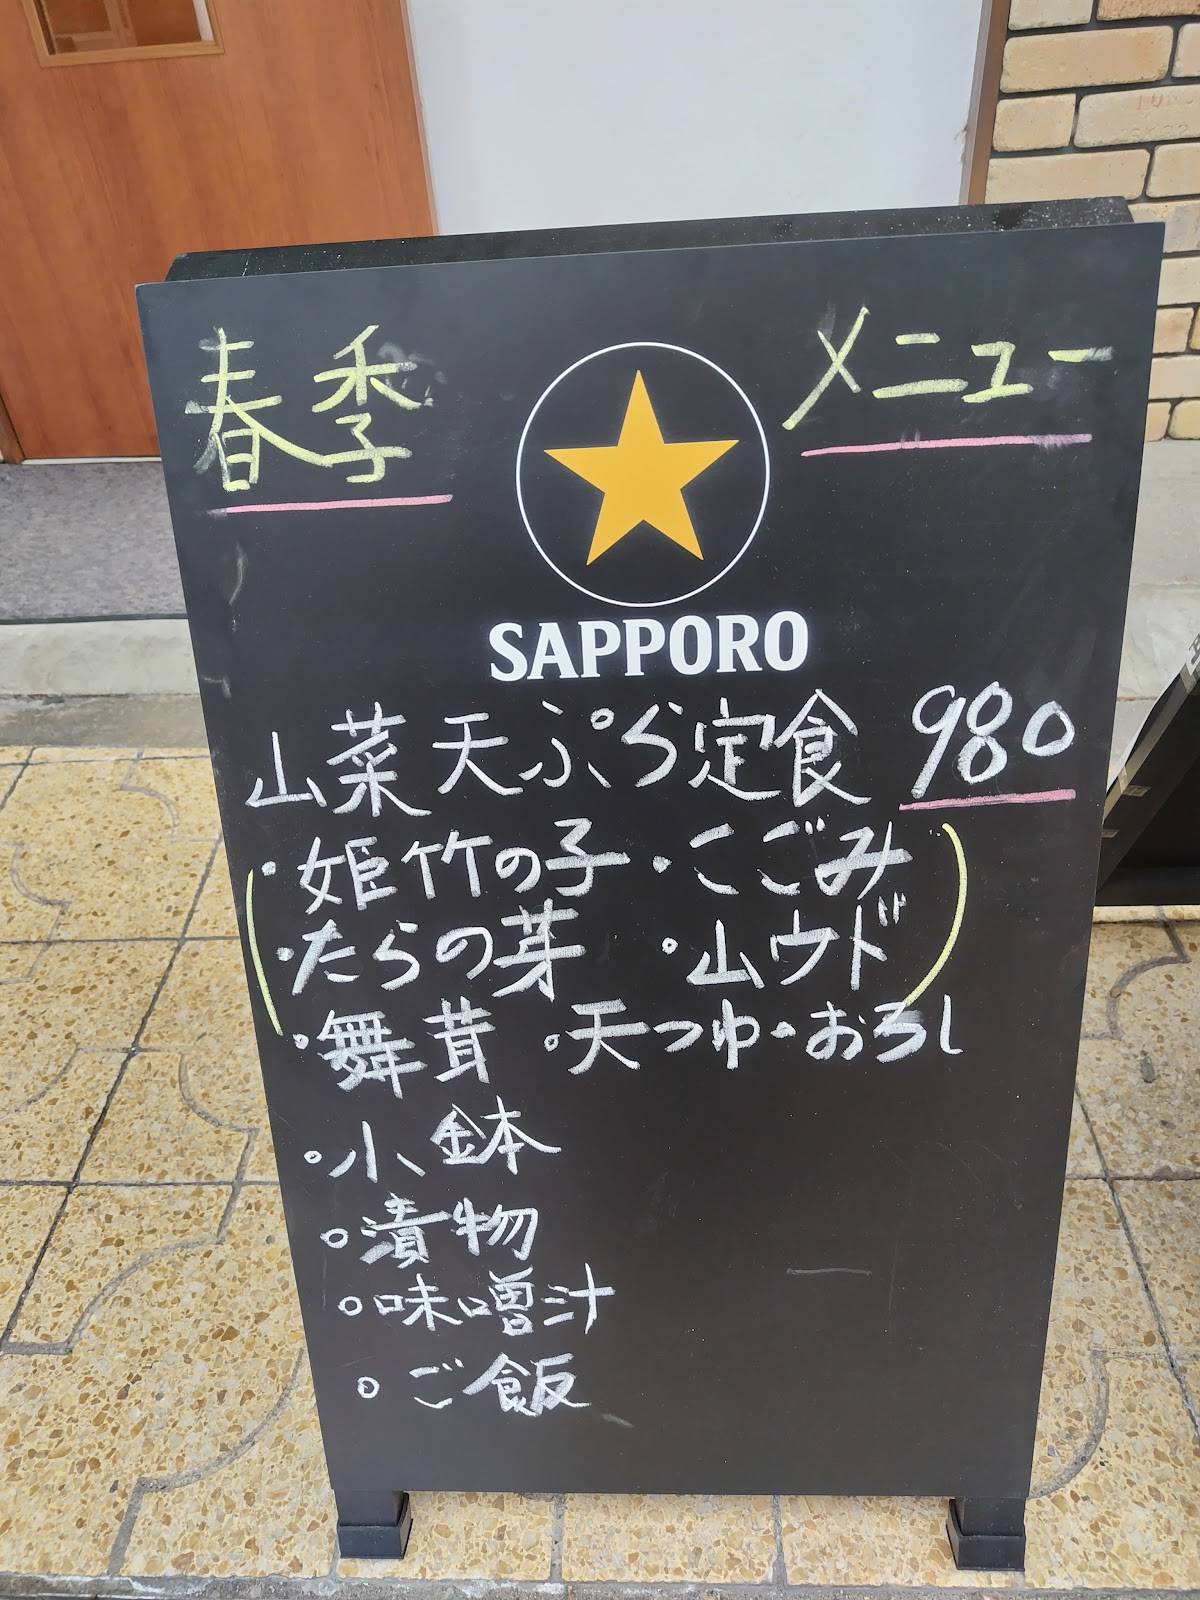 春季 メニュー
SAPPORO
山菜天ぷら定食 980
・姫竹の子・こごみ
・たらの芽 ・山ウド
・舞茸 ・天つゆ・おろし
・小鉢
・漬物
・味噌汁
・ご飯